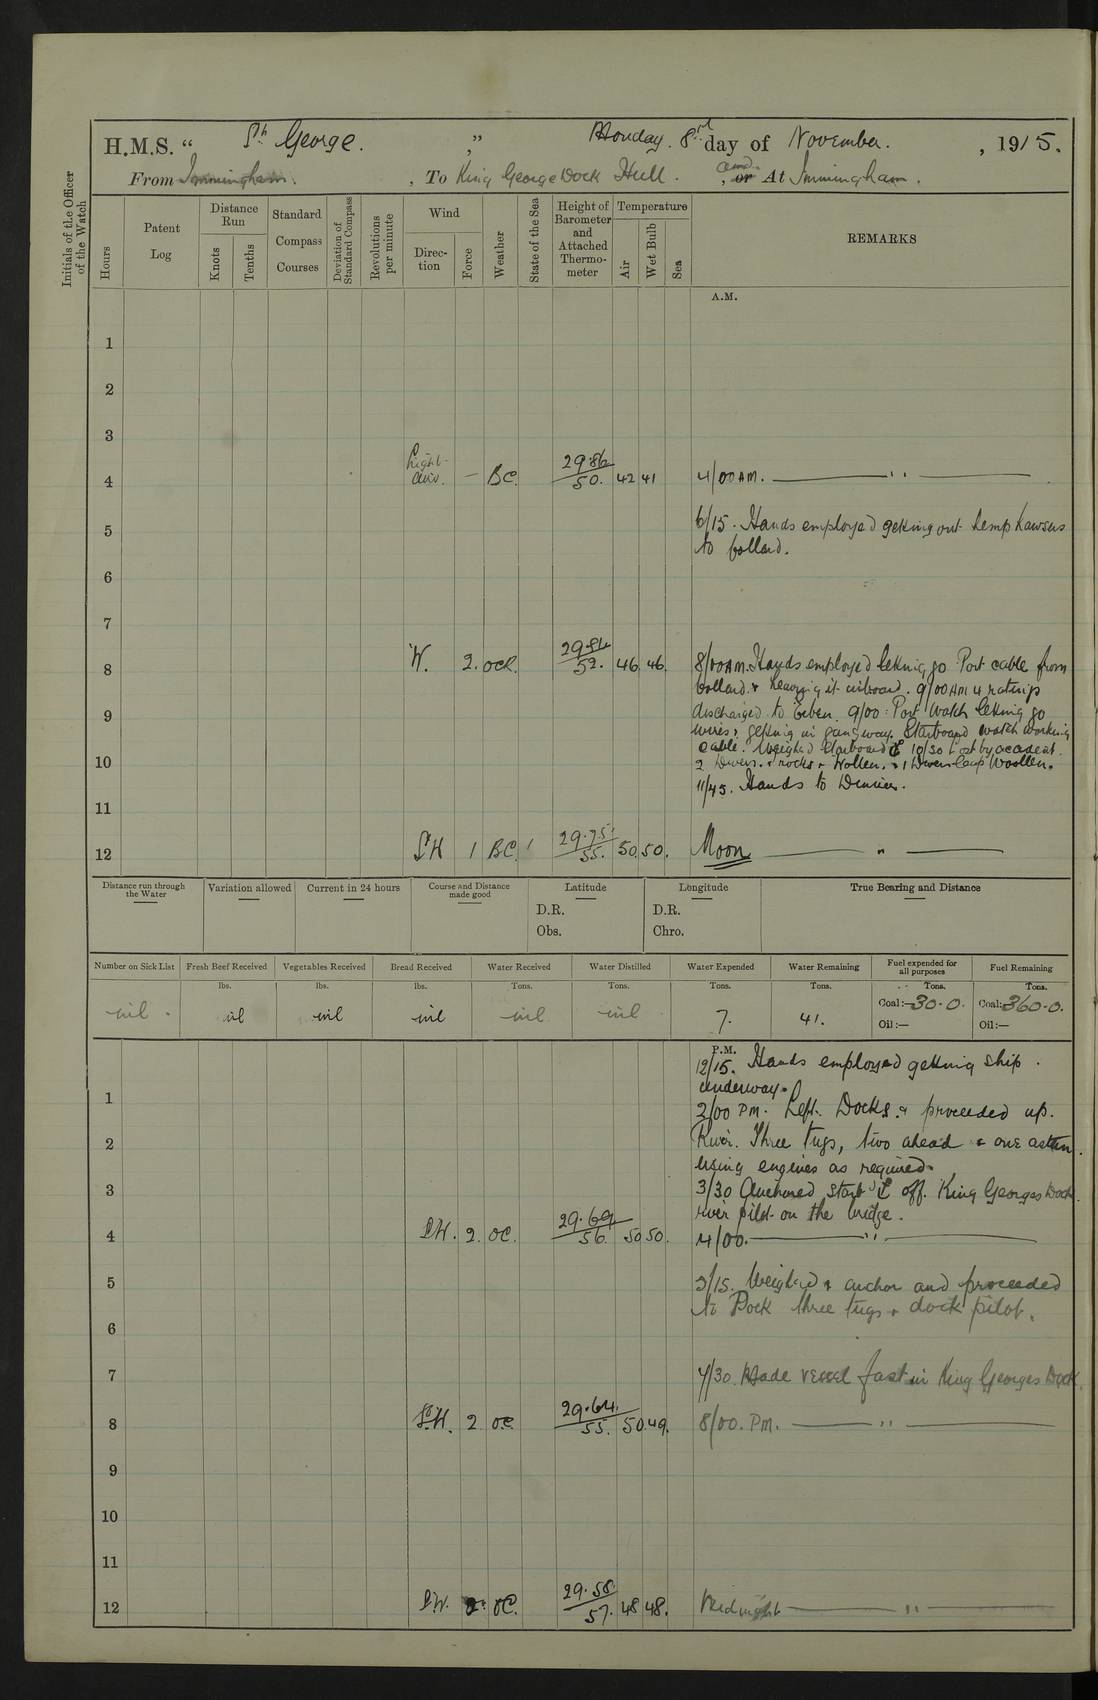 H.M.S. “ St George. ,” Monday. 8th day of November. , 1915.
From Immingham. , To King George Dock Hull . , and or At Immingham .
Initials of the Officer of the Watch
Hours
Patent Log
Distance Run
Knots
Tenths
Standard Compass Courses
Deviation of Standard Compass
Revolutions per minute
Wind
Direction
Force
Weather
State of the Sea
Height of Barometer and Attached Thermometer
Temperature
Air
Wet Bulb
Sea
REMARKS
A.M.
1
2
3
4 Light airs. – BC. 29.86 50. 42 41 4/00 AM. ——— '' ———
5 6/15. Hands employed getting out hemp hawsers
to bollard.
6
7
8 W. 2. OCR. 46. 46. 8/00 AM. Hands employed letting go Port cable from
bollard & heaving it inboard. 9/00 AM 4 ratings
discharged to 9/00: Port Watch letting go
9
wires & getting in gangway. Starboard watch working
cable. Weighed Starboard ⚓ 10/30 Lost by accident.
10 2 Divers. Frocks Wollen. & 1 Divers Cap Woollen.
11/45. Hands to Dinner.
11
12 1 BC. 1 29.75 55. 50. 50. Noon ——— '' ———
Distance run through the Water
Variation allowed
Current in 24 hours
Course and Distance made good
Latitude
D.R.
Obs.
Longitude
D.R.
Chro.
True Bearing and Distance
Number on Sick List
Fresh Beef Received
Vegetables Received
Bread Received
Water Received
Water Distilled
Water Expended
Water Remaining
Fuel expended for all purposes
Fuel Remaining
lbs. lbs. lbs. Tons. Tons. Tons. Tons. Tons. Tons.
nil. nil nil nil nil nil 7. 41. Coal:— 30.0. Coal: 360.0.
Oil:— Oil:—
P.M.
12/15. Hands employed getting ship
underway.
1 2/00 PM. Left Docks & proceeded up.
2 River. Three tugs, two ahead & one astern.
Using engines as required.
3 3/30 Anchored Starb'd ⚓ off King Georges Dock.
river pilot on the bridge.
4 SW. 2. OC. 29.69 56. 50 50. 4/00. ——— '' ———
5 Weighed anchor and proceeded
to Dock three tugs & dock pilot.
6
7 7/30. Made vessel fast in King Georges Dock.
8 SW. 2 OC. 29.64. 55. 50. 49. 8/00. PM. ——— '' ———
9
10
11
12 SW. 2. OC. 29.58 57. 48 48. Midnight ——— '' ———